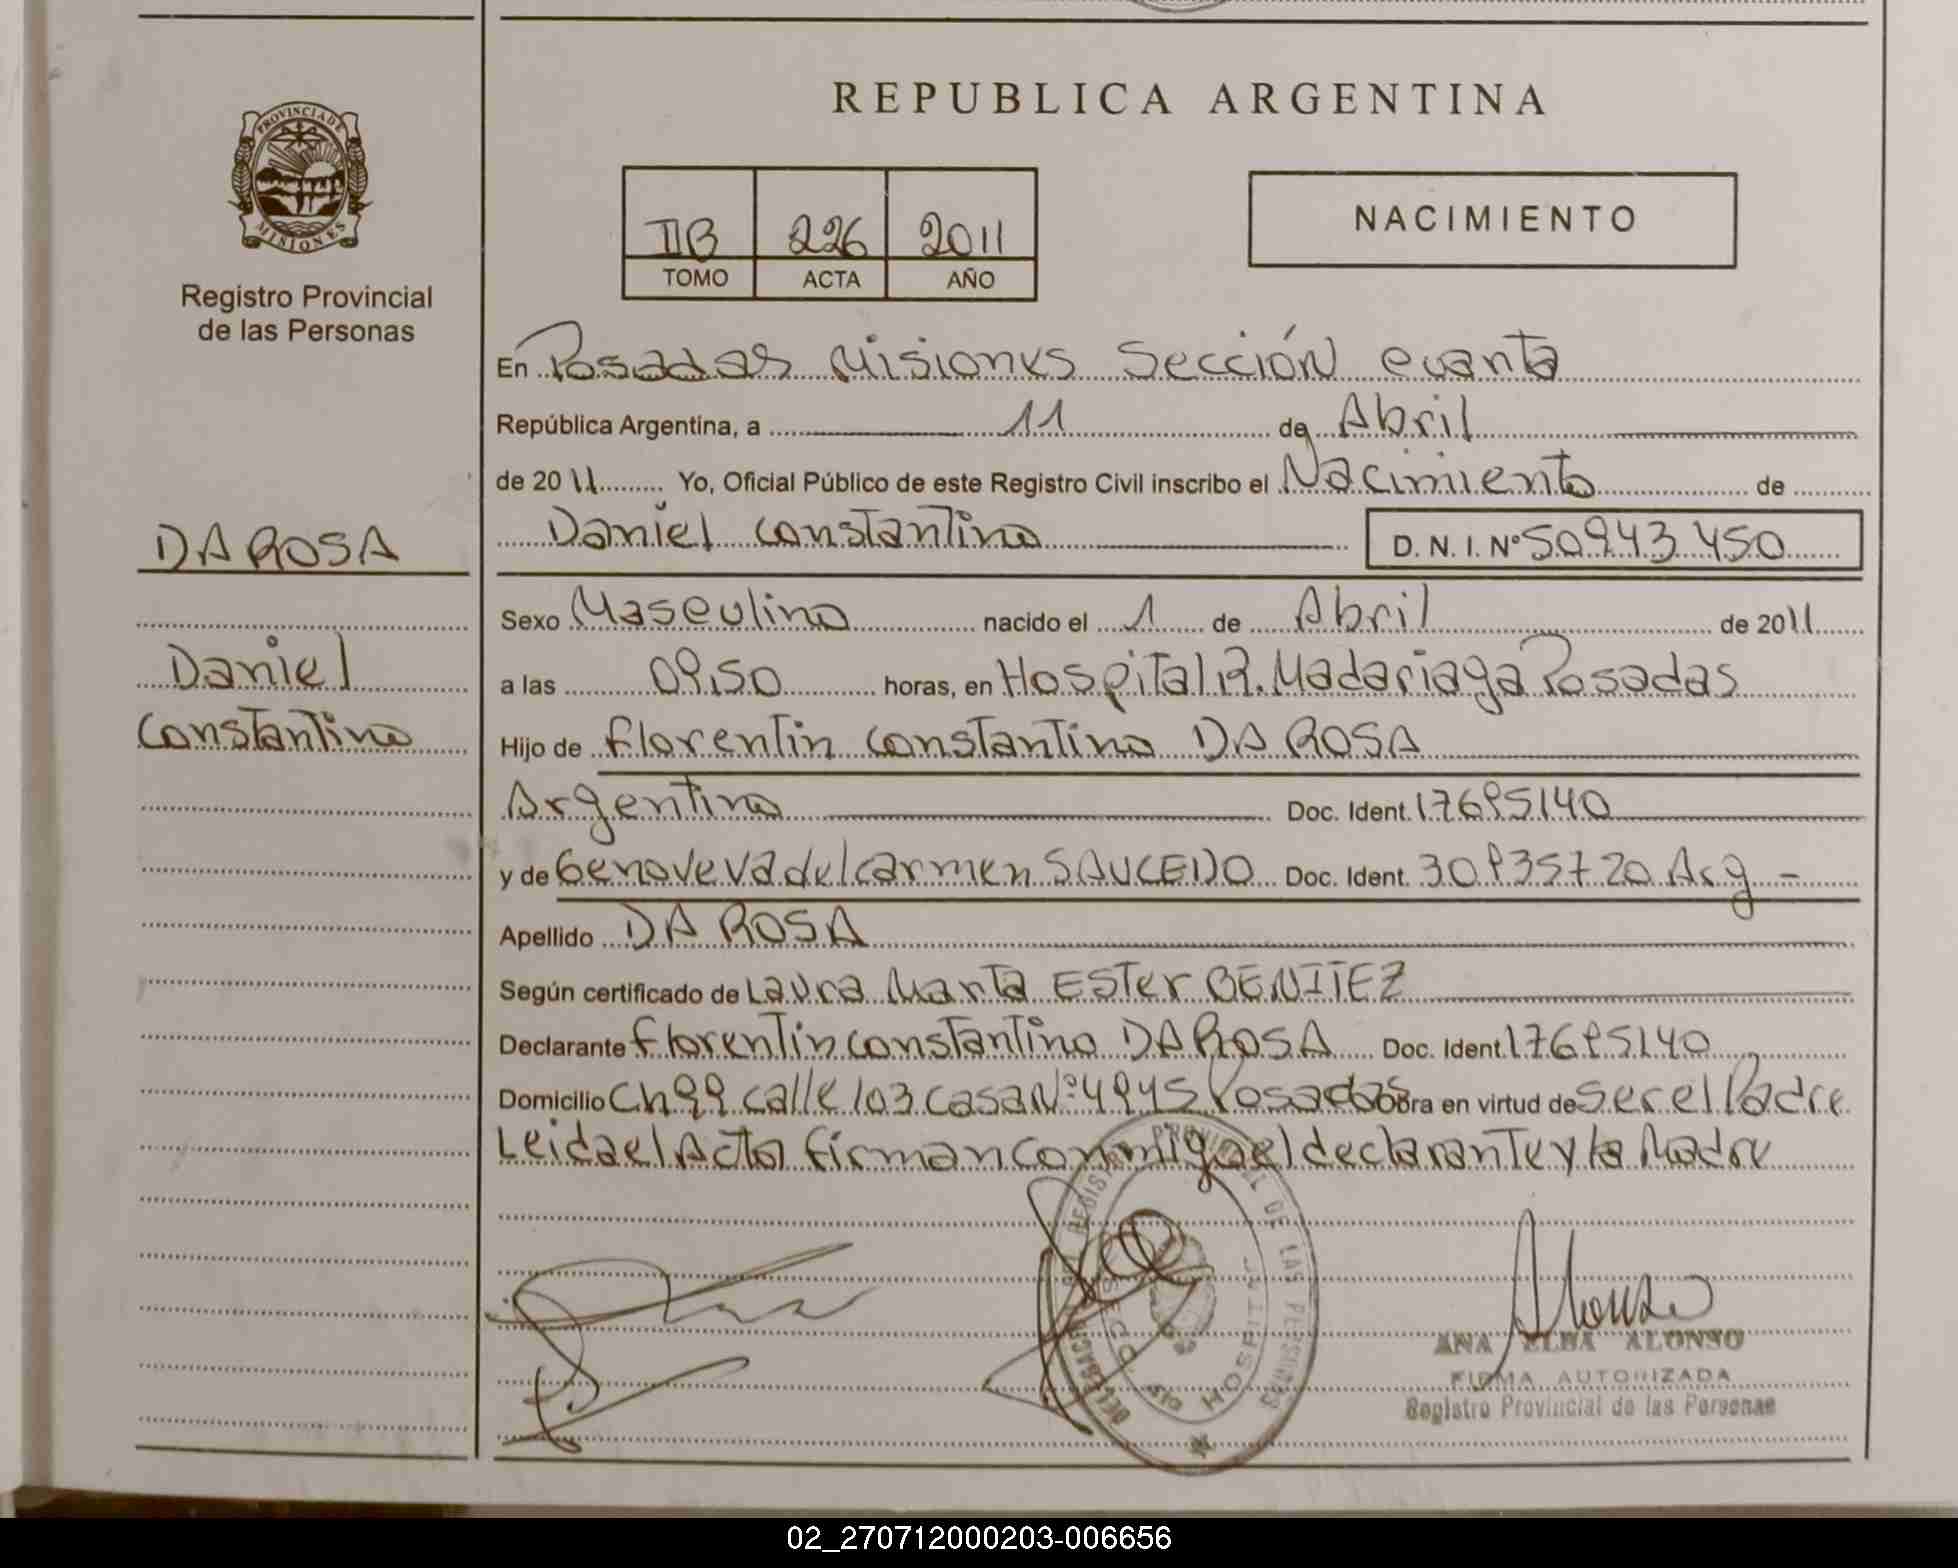 PROVINCIA DE
MISIONES
Registro Provincial
de las Personas
DA ROSA
Daniel
Constantino
REPUBLICA ARGENTINA
IIB 226 2011
TOMO ACTA AÑO
NACIMIENTO
En Posadas Misiones Sección cuarta
República Argentina, a 11 de Abril
de 2011 Yo, Oficial Público de este Registro Civil inscribo el Nacimiento de
Daniel Constantino D. N. I. Nº 50.943.450
Sexo Masculino nacido el 1 de Abril de 2011
a las 09,50 horas, en Hospital R. Madariaga Posadas
Hijo de Florentin Constantino DA ROSA
Argentino Doc. Ident. 17695140
y de Genoveva del Carmen SAUCEDO Doc. Ident. 30935720 Arg -
Apellido DA ROSA
Según certificado de Laura Marta Ester BENITEZ
Declarante Florentin Constantino DA ROSA Doc. Ident. 17695140
Domicilio Ch 99 calle 103 casa Nº 4945 Posadas Obra en virtud de ser el Padre
Leida el Acta firman conmigo el declarante y la Madre
ANA ELBA ALONSO
FIRMA AUTORIZADA
Registro Provincial de las Personas
02_270712000203-006656